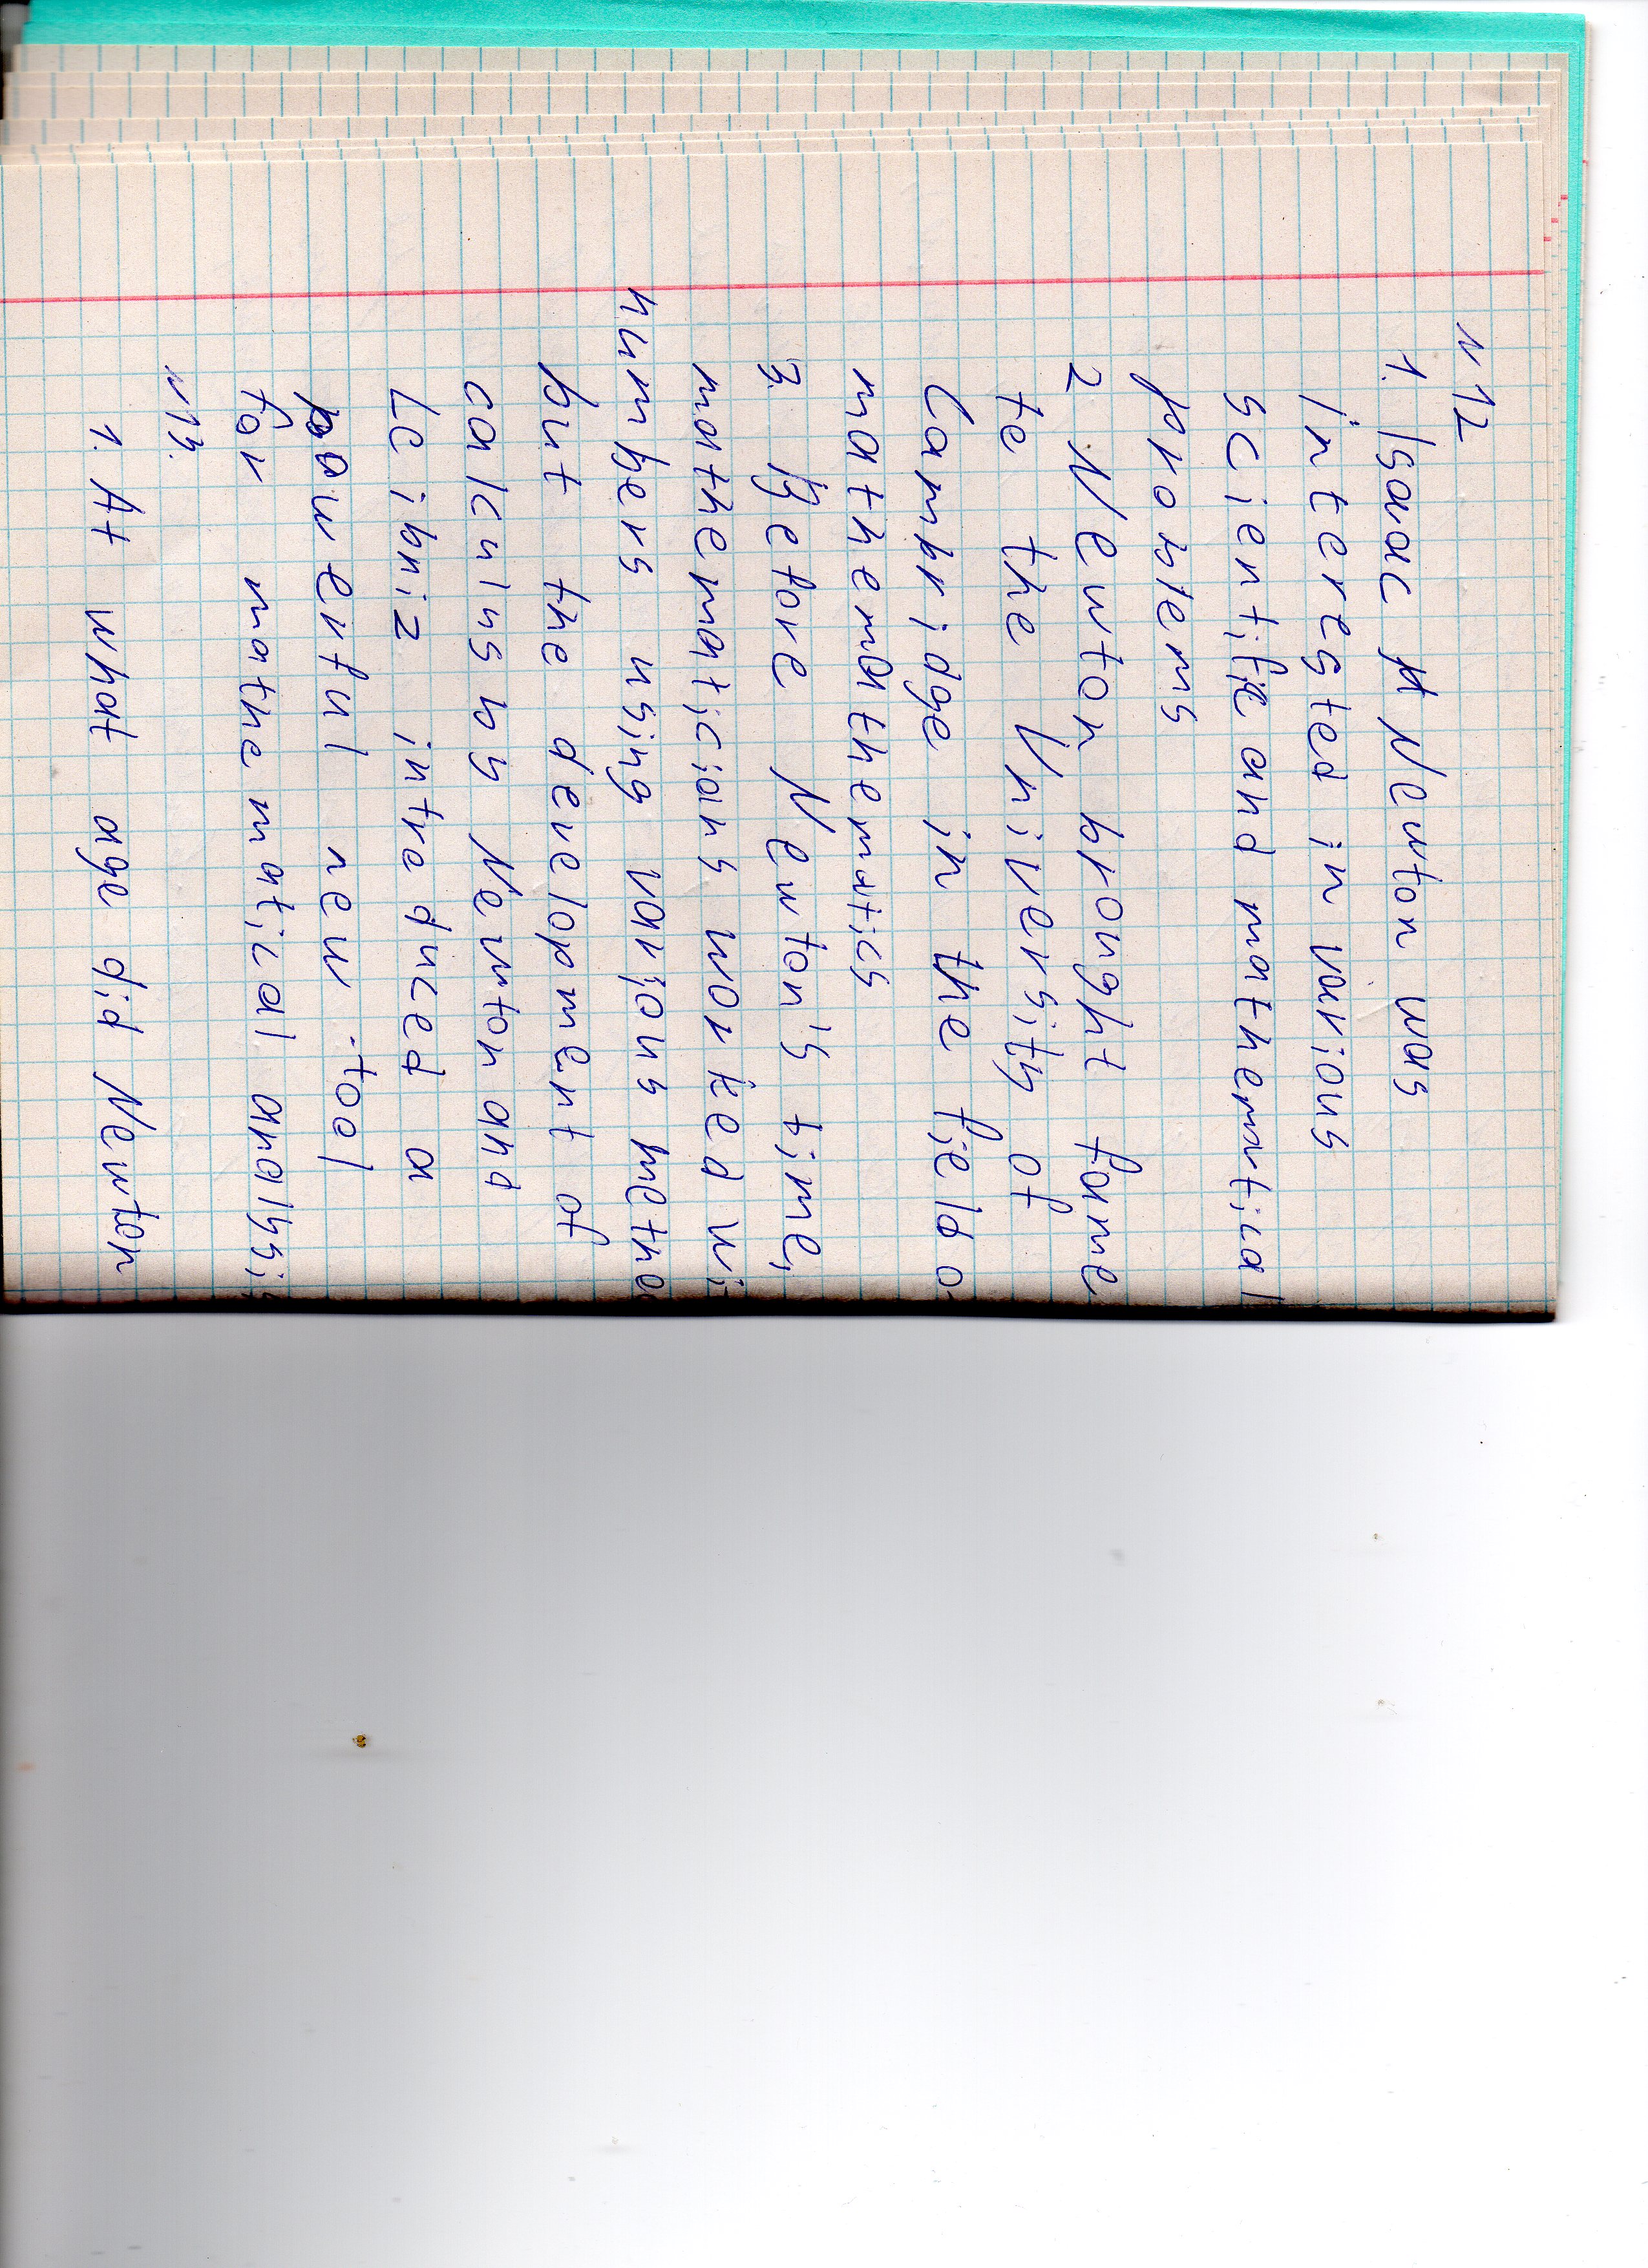 N 12
1. Isaac Newton was
interested in various
scientific and mathematical
problems
2 Newton brought fame
to the University of
Cambridge in the field o
mathemathematics
3. Before Newton's time,
mathematicians worked wi
numbers using various metho
but the development of
calculus by Newton and
Leibniz introduced a
powerful new tool
for mathematical analysi
N 13.
1. At what age did Newton